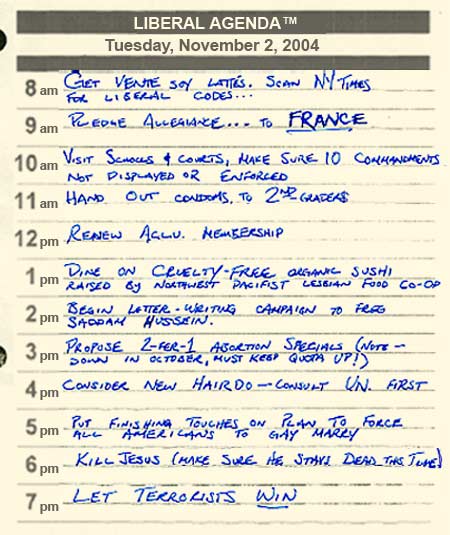 LIBERAL AGENDA™
Tuesday, November 2, 2004
8 am GET VENTE SOY LATTÉS. SCAN NY TIMES
FOR LIBERAL CODES...
9 am PLEDGE ALLEGIANCE... TO FRANCE
10 am VISIT SCHOOLS & COURTS, MAKE SURE 10 COMMANDMENTS
NOT DISPLAYED OR ENFORCED
11 am HAND OUT CONDOMS TO 2ND GRADERS
12 pm RENEW ACLU MEMBERSHIP
1 pm DINE ON CRUELTY-FREE ORGANIC SUSHI
RAISED BY NORTHWEST PACIFIST LESBIAN FOOD CO-OP
2 pm BEGIN LETTER-WRITING CAMPAIGN TO FREE
SADDAM HUSSEIN.
3 pm PROPOSE 2-FER-1 ABORTION SPECIALS (NOTE –
DOWN IN OCTOBER, MUST KEEP QUOTA UP!)
4 pm CONSIDER NEW HAIRDO – CONSULT U.N. FIRST
5 pm PUT FINISHING TOUCHES ON PLAN TO FORCE
ALL AMERICANS TO GAY MARRY
6 pm KILL JESUS (MAKE SURE HE STAYS DEAD THIS TIME!)
7 pm LET TERRORISTS WIN